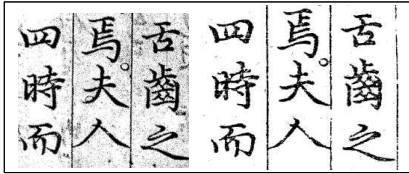 舌齒之
焉。夫人
四時而
舌齒之
焉。夫人
四時而